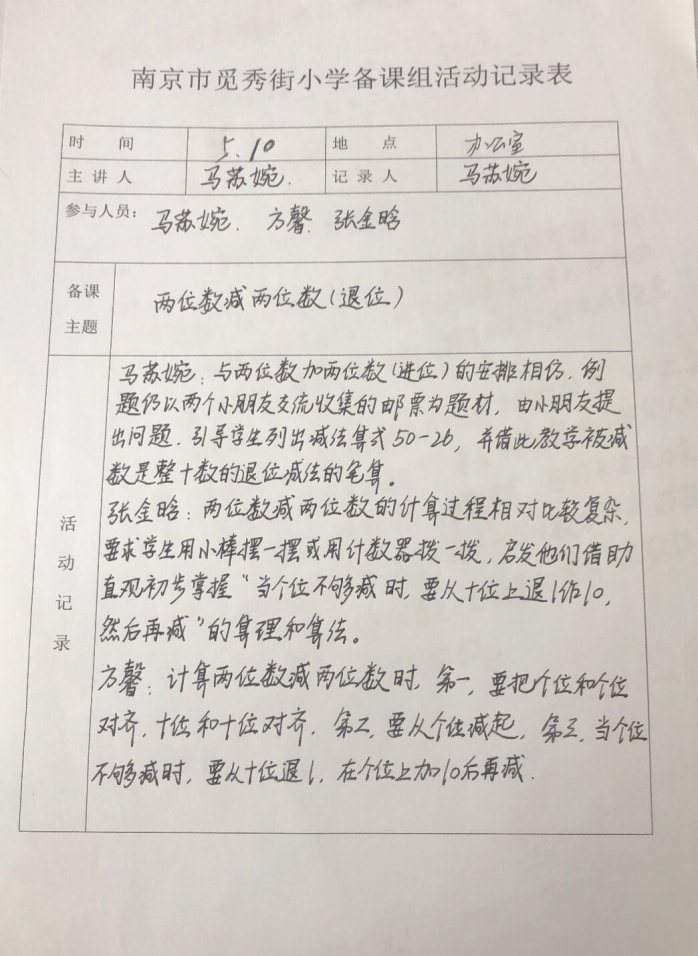 南京市觅秀街小学备课组活动记录表
时 间 5.10 地 点 办公室
主 讲 人 马苏婉. 记 录 人 马苏婉
参与人员： 马苏婉. 方馨. 张金晗
备课
主题
两位数减两位数（退位）
活动记录
马苏婉：与两位数加两位数（进位）的安排相仿.例
题仍以两个小朋友交流收集的邮票为题材，由小朋友提
出问题.引导学生列出减法算式50-26，并借此教学被减
数是整十数的退位减法的笔算。
张金晗：两位数减两位数的计算过程相对比较复杂,
要求学生用小棒摆一摆或用计数器拨一拨,启发他们借助
直观初步掌握“当个位不够减时,要从十位上退1作10,
然后再减”的算理和算法。
方馨：计算两位数减两位数时.第一,要把个位和个位
对齐,十位和十位对齐.第二,要从个位减起,第三,当个位
不够减时,要从十位退1,在个位上加10后再减.